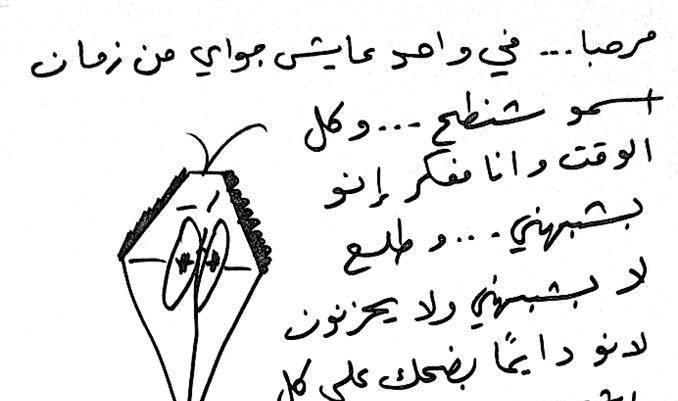 مرحبا... في واحد عايش جواي من زمان
اسمو شنطح... وكل
الوقت وانا مفكر إنو
بشبهني... و طلع
لا بشبهني ولا يحزنون
لانو دايمًا بضحك على كل